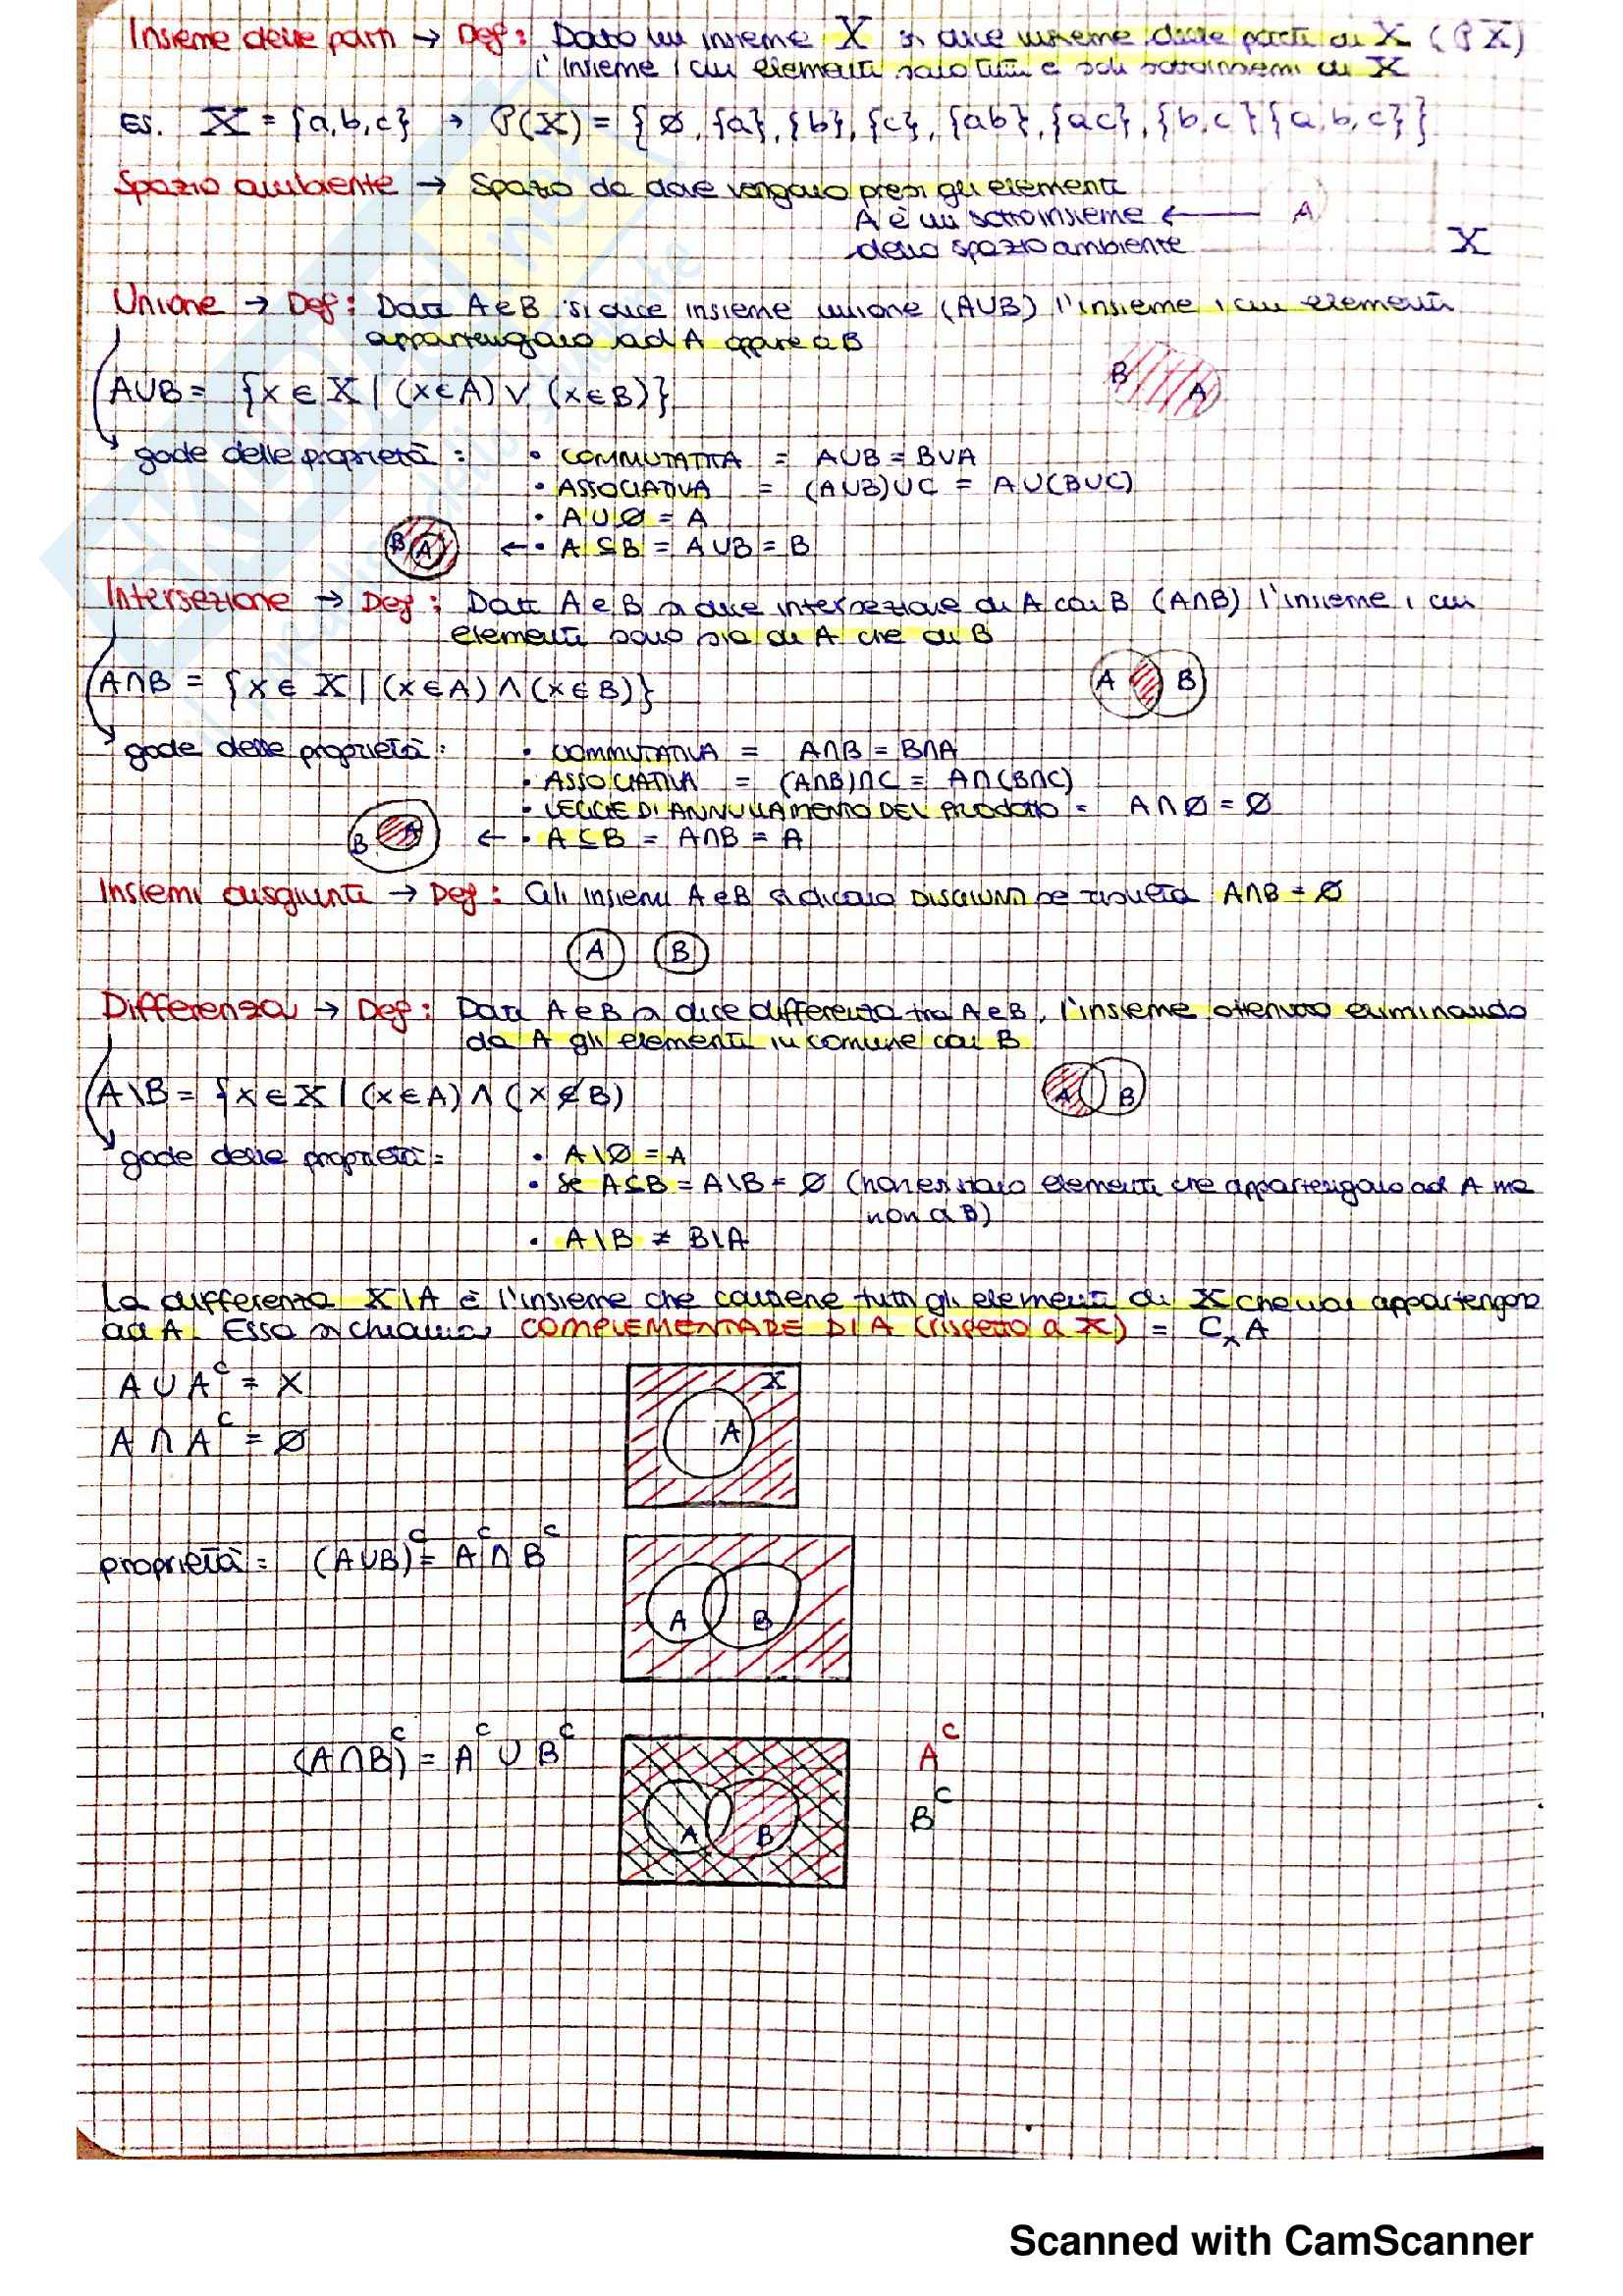 Insieme delle parti → Def: Dato un insieme X si dice insieme delle parti di X (P X)
l'insieme i cui elementi sono tutti e soli sottoinsiemi di X
ES. X = {a,b,c} → P(X) = {Ø, {a}, {b}, {c}, {ab}, {ac}, {b,c} {a,b,c}}
Spazio ambiente → Spazio da dove vengono presi gli elementi
A è un sottoinsieme ← A
dello spazio ambiente X
Unione → Def: Dati A e B si dice insieme unione (A∪B) l'insieme i cui elementi
appartengano ad A oppure a B
B A
A∪B = {x ∈ X | (x∈A) ∨ (x∈B)}
gode delle proprietà: • COMMUTATIVA = A∪B = B∪A
• ASSOCIATIVA = (A∪B)∪C = A∪(B∪C)
• A∪Ø = A
B A ← • A⊆B = A∪B = B
Intersezione → Def: Dati A e B si dice intersezione di A con B (A∩B) l'insieme i cui
elementi sono sia di A che di B
A∩B = {x ∈ X | (x∈A) ∧ (x∈B)} A B
gode delle proprietà: • COMMUTATIVA = A∩B = B∩A
• ASSOCIATIVA = (A∩B)∩C = A∩(B∩C)
• LEGGE DI ANNULLAMENTO DEL PRODOTTO = A∩Ø = Ø
B A ← • A⊆B = A∩B = A
Insiemi disgiunti → Def: Gli insiemi A e B si dicono DISGIUNTI se risulta A∩B = Ø
A B
Differenza → Def: Dati A e B si dice differenza tra A e B, l'insieme ottenuto eliminando
da A gli elementi in comune con B
A\B = {x∈X | (x∈A) ∧ (x∉B) A B
gode delle proprietà = • A\Ø = A
• se A⊆B = A\B = Ø (non esistono elementi che appartengono ad A ma
non a B)
• A\B ≠ B\A
La differenza X\A è l'insieme che contiene tutti gli elementi di X che non appartengono
ad A. Esso si chiama COMPLEMENTARE DI A (rispetto a X) = CₓA
A∪Aᶜ = X X
A∩Aᶜ = Ø A
proprietà = (A∪B)ᶜ = Aᶜ∩Bᶜ
A B
(A∩B)ᶜ = Aᶜ∪Bᶜ Aᶜ
A B Bᶜ
Scanned with CamScanner